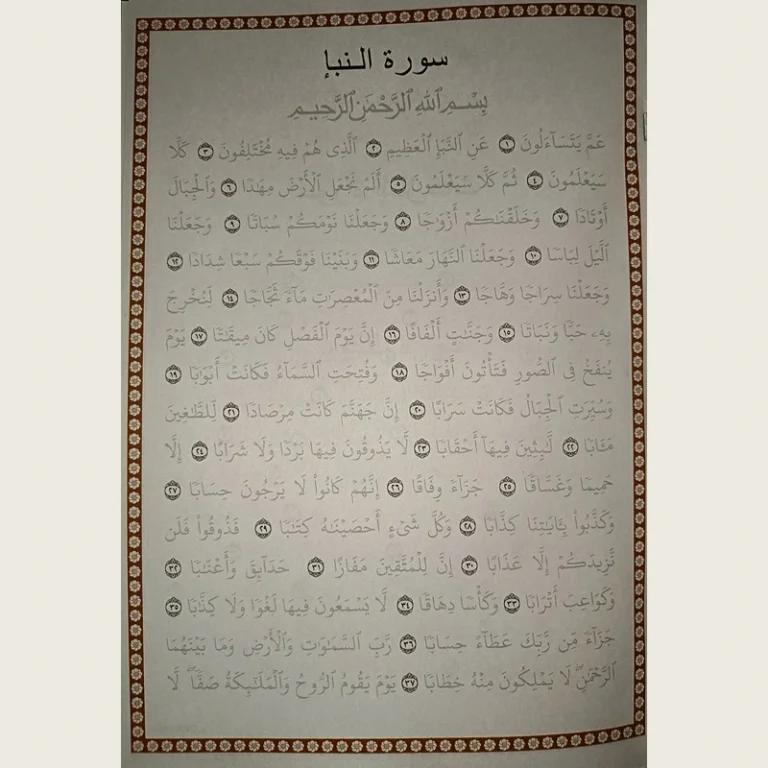 سورة النبإ
بِسْمِ ٱللَّهِ ٱلرَّحْمَٰنِ ٱلرَّحِيمِ
عَمَّ يَتَسَآءَلُونَ ١ عَنِ ٱلنَّبَإِ ٱلْعَظِيمِ ٢ ٱلَّذِى هُمْ فِيهِ مُخْتَلِفُونَ ٣ كَلَّا
سَيَعْلَمُونَ ٤ ثُمَّ كَلَّا سَيَعْلَمُونَ ٥ أَلَمْ نَجْعَلِ ٱلْأَرْضَ مِهَٰدًا ٦ وَٱلْجِبَالَ
أَوْتَادًا ٧ وَخَلَقْنَٰكُمْ أَزْوَٰجًا ٨ وَجَعَلْنَا نَوْمَكُمْ سُبَاتًا ٩ وَجَعَلْنَا
ٱلَّيْلَ لِبَاسًا ١٠ وَجَعَلْنَا ٱلنَّهَارَ مَعَاشًا ١١ وَبَنَيْنَا فَوْقَكُمْ سَبْعًا شِدَادًا ١٢
وَجَعَلْنَا سِرَاجًا وَهَّاجًا ١٣ وَأَنزَلْنَا مِنَ ٱلْمُعْصِرَٰتِ مَآءً ثَجَّاجًا ١٤ لِّنُخْرِجَ
بِهِۦ حَبًّا وَنَبَاتًا ١٥ وَجَنَّٰتٍ أَلْفَافًا ١٦ إِنَّ يَوْمَ ٱلْفَصْلِ كَانَ مِيقَٰتًا ١٧ يَوْمَ
يُنفَخُ فِى ٱلصُّورِ فَتَأْتُونَ أَفْوَاجًا ١٨ وَفُتِحَتِ ٱلسَّمَآءُ فَكَانَتْ أَبْوَٰبًا ١٩
وَسُيِّرَتِ ٱلْجِبَالُ فَكَانَتْ سَرَابًا ٢٠ إِنَّ جَهَنَّمَ كَانَتْ مِرْصَادًا ٢١ لِّلطَّٰغِينَ
مَـَٔابًا ٢٢ لَّٰبِثِينَ فِيهَآ أَحْقَابًا ٢٣ لَّا يَذُوقُونَ فِيهَا بَرْدًا وَلَا شَرَابًا ٢٤ إِلَّا
حَمِيمًا وَغَسَّاقًا ٢٥ جَزَآءً وِفَاقًا ٢٦ إِنَّهُمْ كَانُوا۟ لَا يَرْجُونَ حِسَابًا ٢٧
وَكَذَّبُوا۟ بِـَٔايَٰتِنَا كِذَّابًا ٢٨ وَكُلَّ شَىْءٍ أَحْصَيْنَٰهُ كِتَٰبًا ٢٩ فَذُوقُوا۟ فَلَن
نَّزِيدَكُمْ إِلَّا عَذَابًا ٣٠ إِنَّ لِلْمُتَّقِينَ مَفَازًا ٣١ حَدَآئِقَ وَأَعْنَٰبًا ٣٢
وَكَوَاعِبَ أَتْرَابًا ٣٣ وَكَأْسًا دِهَاقًا ٣٤ لَّا يَسْمَعُونَ فِيهَا لَغْوًا وَلَا كِذَّٰبًا ٣٥
جَزَآءً مِّن رَّبِّكَ عَطَآءً حِسَابًا ٣٦ رَّبِّ ٱلسَّمَٰوَٰتِ وَٱلْأَرْضِ وَمَا بَيْنَهُمَا
ٱلرَّحْمَٰنِ ۖ لَا يَمْلِكُونَ مِنْهُ خِطَابًا ٣٧ يَوْمَ يَقُومُ ٱلرُّوحُ وَٱلْمَلَٰٓئِكَةُ صَفًّا ۖ لَّا